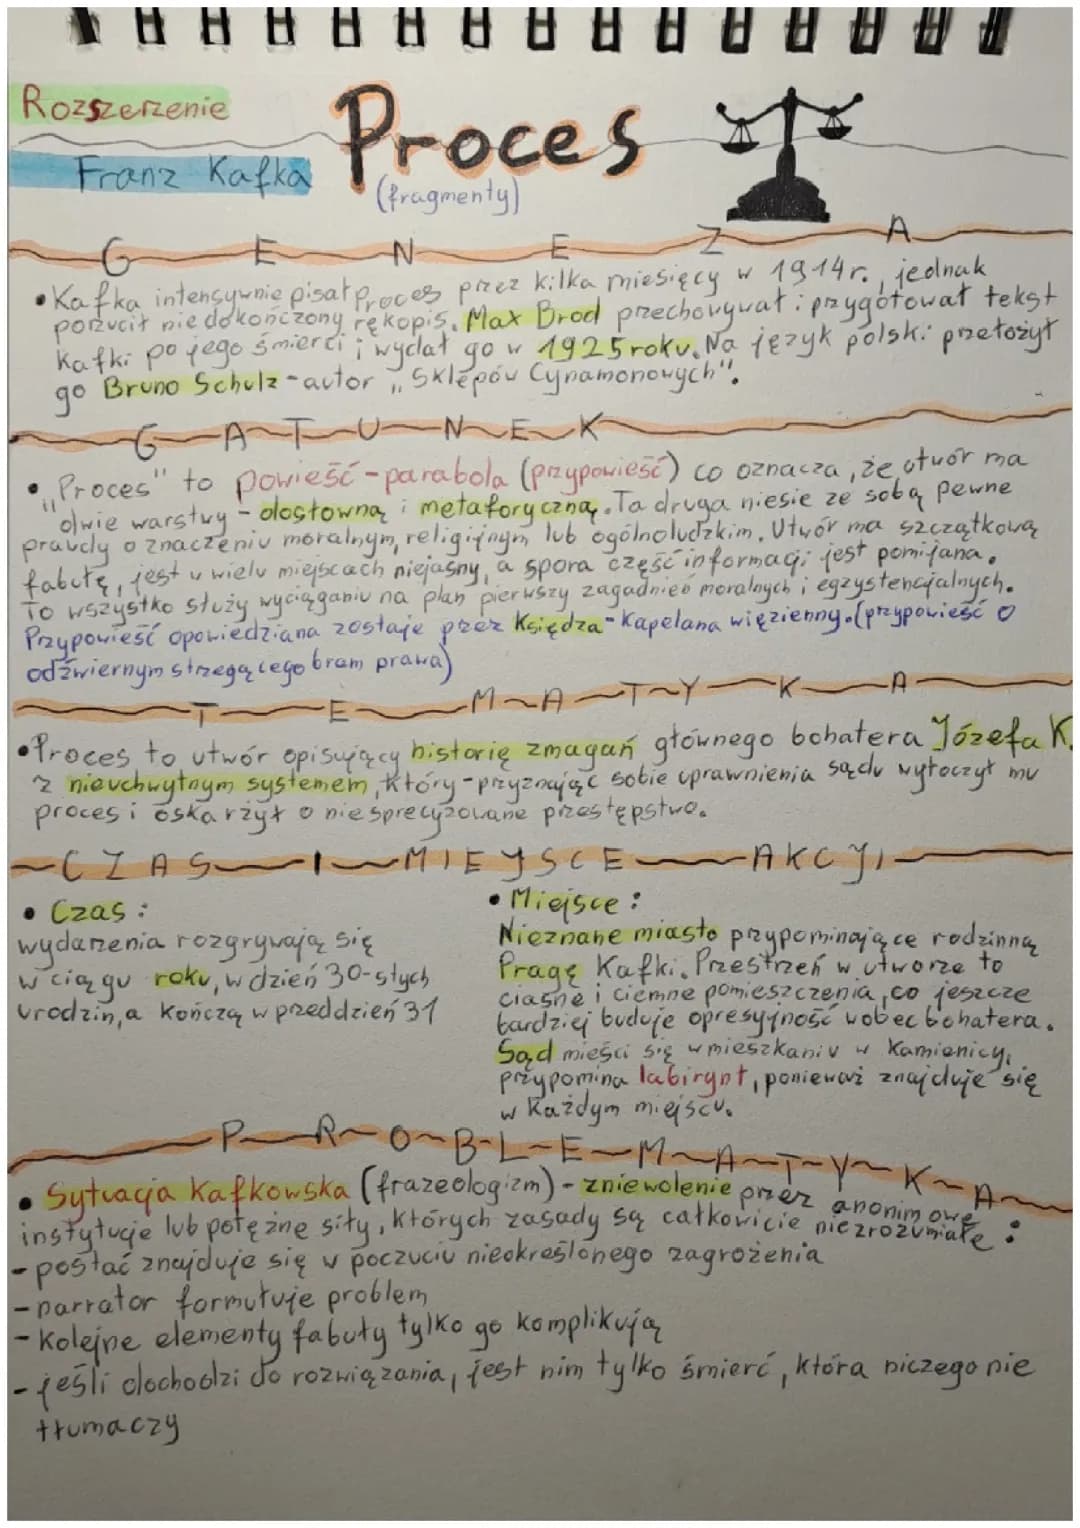 Rozszerzenie
Proces
Franz Kafka
(fragmenty)
GENEZA
• Kafka intensywnie pisał Proces przez kilka miesięcy w 1914r., jednak
porzucił niedokończony rękopis. Max Brod przechowywał i przygotował tekst
Kafki po jego śmierci i wydał go w 1925 roku. Na język polski przełożył
go Bruno Schulz - autor „Sklepów Cynamonowych".
GATUNEK
• „Proces" to powieść - parabola (przypowieść) co oznacza, że utwór ma
dwie warstwy - dosłowną i metaforyczną. Ta druga niesie ze sobą pewne
prawdy o znaczeniu moralnym, religijnym lub ogólnoludzkim. Utwór ma szczątkową
fabułę, jest w wielu miejscach niejasny, a spora część informacji jest pomijana.
To wszystko służy wyciąganiu na plan pierwszy zagadnień moralnych i egzystencjalnych.
Przypowieść opowiedziana zostaje przez Księdza - Kapelana więzienny. (przypowieść o
odźwiernym strzegącego bram prawa)
TEMATYKA
• Proces to utwór opisujący historię zmagań głównego bohatera Józefa K.
z nieuchwytnym systemem, który - przyznając sobie uprawnienia sądu wytoczył mu
proces i oskarżył o niesprecyzowane przestępstwo.
CZAS I MIEJSCE AKCJI
• Czas:
wydarzenia rozgrywają się
w ciągu roku, w dzień 30-stych
urodzin, a kończą w przeddzień 31
• Miejsce:
Nieznane miasto przypominające rodzinną
Pragę Kafki. Przestrzeń w utworze to
ciasne i ciemne pomieszczenia, co jeszcze
bardziej buduje opresyjność wobec bohatera.
Sąd mieści się w mieszkaniu w kamienicy,
przypomina labirynt, ponieważ znajduje się
w każdym miejscu.
PROBLEMATYKA
• Sytuacja Kafkowska (frazeologizm) - zniewolenie przez anonimowe
instytucje lub potężne siły, których zasady są całkowicie niezrozumiałe:
- postać znajduje się w poczuciu nieokreślonego zagrożenia
- narrator formułuje problem
- kolejne elementy fabuły tylko go komplikują
- jeśli dochodzi do rozwiązania, jest nim tylko śmierć, która niczego nie
tłumaczy